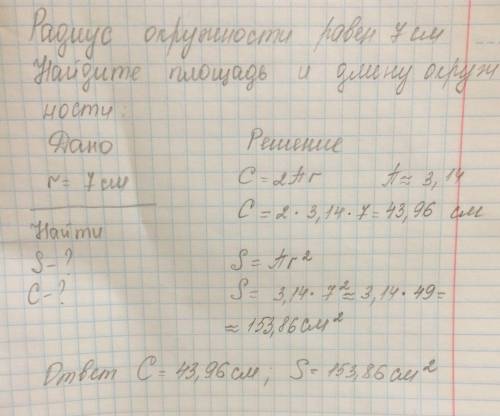 Радиус окружности равен 7 см
Найдите площадь и длину окруж
ности:
Дано Решение
r = 7 см C = 2πr π ≈ 3,14
C = 2 · 3,14 · 7 = 43,96 см
Найти
S - ? S = πr²
C - ? S = 3,14 · 7² ≈ 3,14 · 49 =
≈ 153,86 см²
Ответ C = 43,96 см; S = 153,86 см²